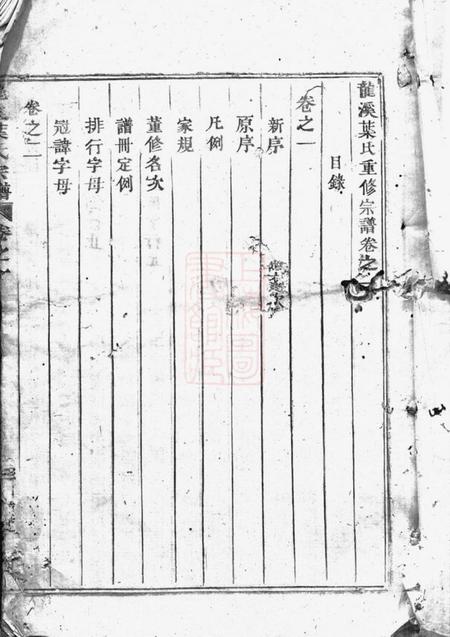 龍溪葉氏重修宗譜卷之一
目錄
卷之一
新序
原序
凡例
家規
董修名次
譜冊定例
排行字母
冠諱字母
卷之二
葉氏宗譜 卷之一